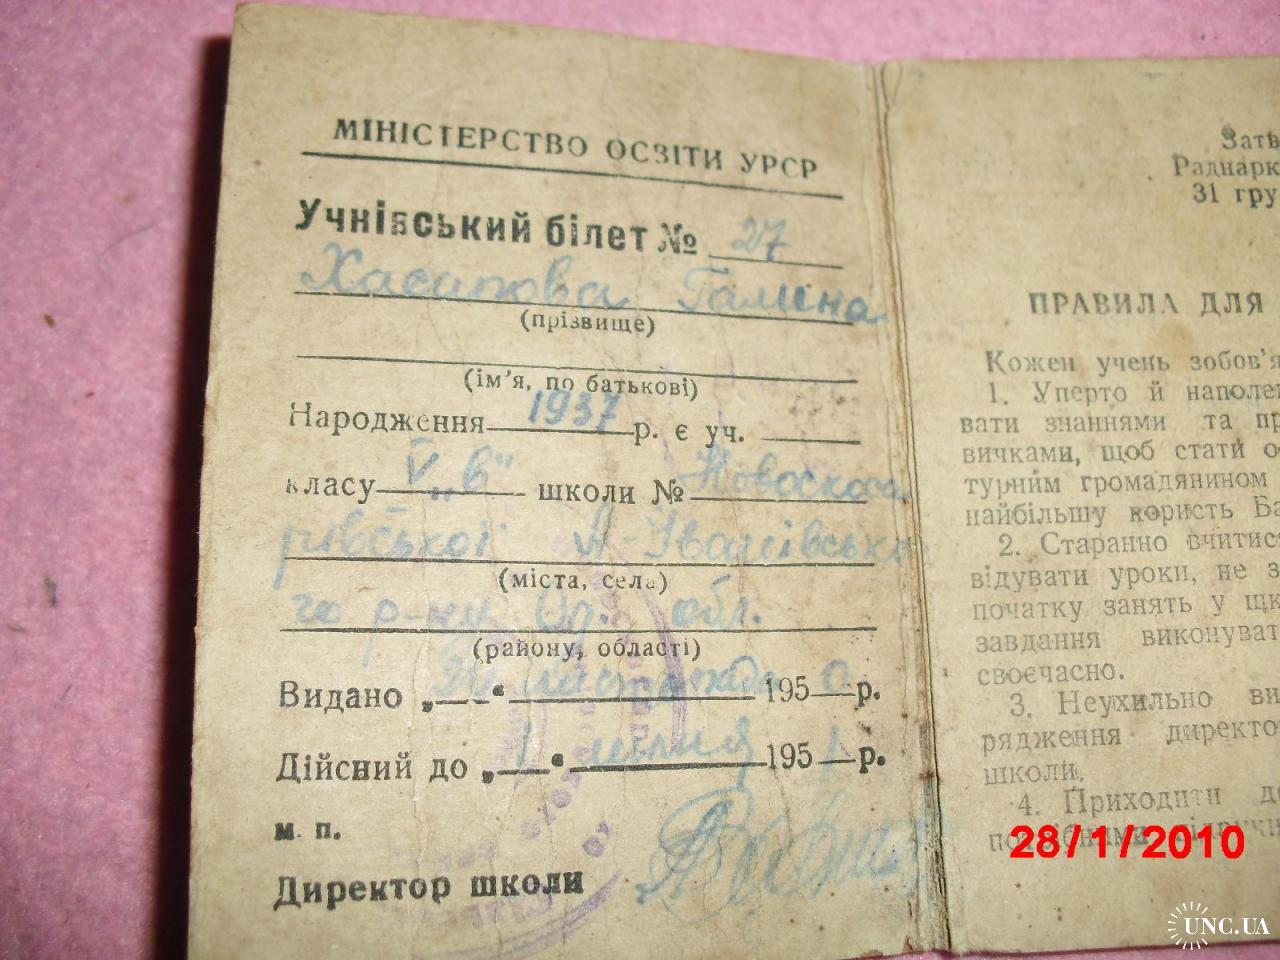 МІНІСТЕРСТВО ОСВІТИ УРСР
Учнівський білет № 27
Хасапова Галина
(прізвище)
(ім'я, по батькові)
Народження 1937 р. є уч.
класу V „в" школи № Новоскоса
рівської А-Іванівсько
(міста, села)
го р-ну Од. обл.
(району, області)
Видано „ " листопада 1950 р.
Дійсний до „1" липня 1951 р.
м. п.
Директор школи
Затв
Раднарк
31 гру
ПРАВИЛА ДЛЯ
Кожен учень зобов'я
1. Уперто й наполег
вати знаннями та пр
вичками, щоб стати о
турним громадянином
найбільшу користь Ба
2. Старанно вчитися
відувати уроки, не з
початку занять у шк
завдання виконуват
своєчасно.
3. Неухильно ви
рядження директо
школи.
4. Приходити до
потрібними підручн
28/1/2010
UNC.UA